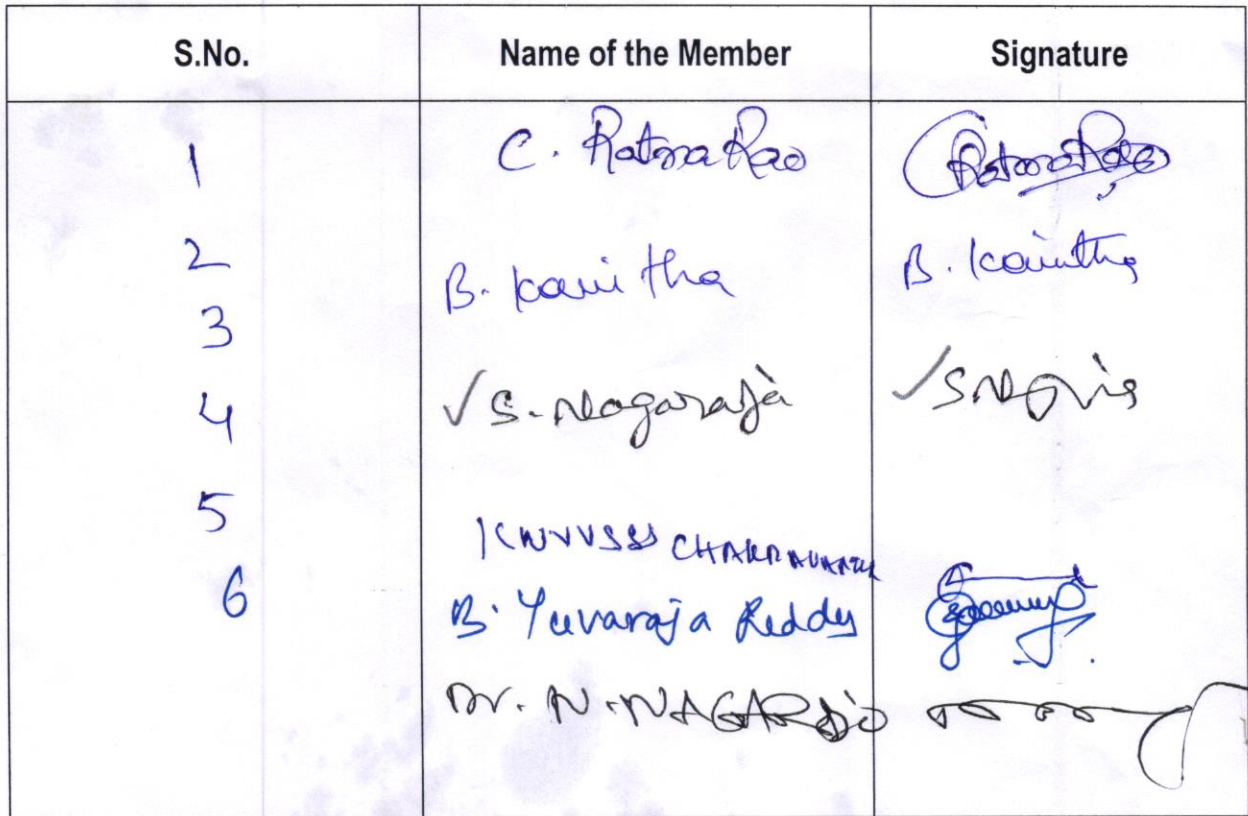 S.No. Name of the Member Signature
1 C. Ratna Rao C Ratna Rao
2 B. Kavitha B. Kavitha
3
4 S. Nagaraja
5
KNVVSSS CHAKRAVARTHI
6 B. Yuvaraja Reddy
Dr. N. NAGARAJU